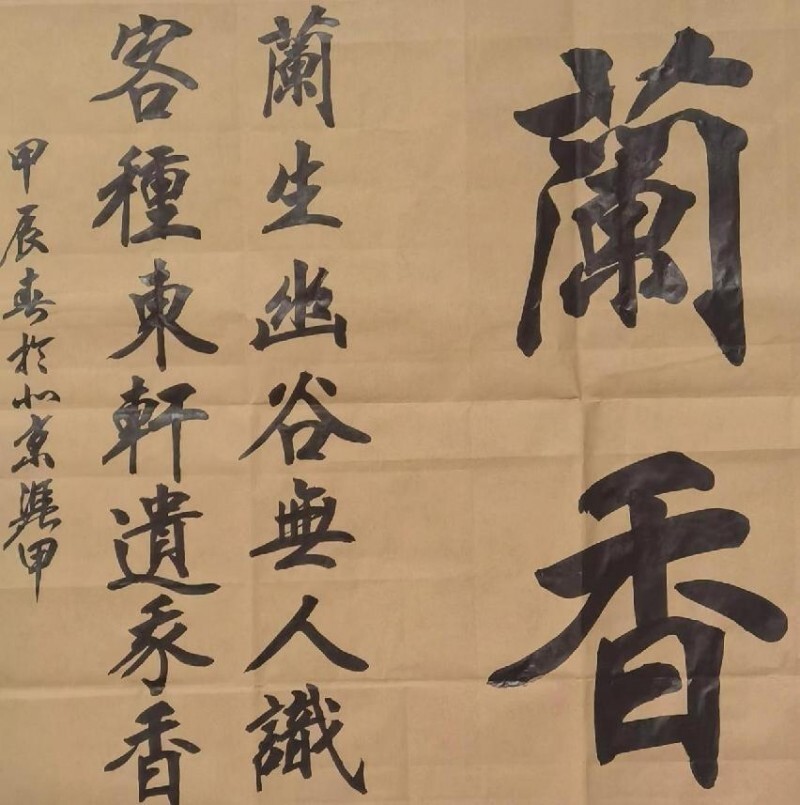 蘭香
蘭生幽谷無人識
客種東軒遺我香
甲辰春於北京 甲